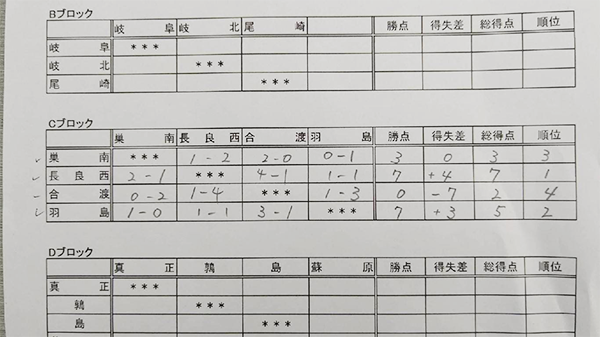 Bブロック
岐阜 岐北 尾崎 勝点 得失差 総得点 順位
岐阜 ***
岐北 ***
尾崎 ***
Cブロック
巣南 長良西 合渡 羽島 勝点 得失差 総得点 順位
巣南 *** 1-2 2-0 0-1 3 0 3 3
長良西 2-1 *** 4-1 1-1 7 +4 7 1
合渡 0-2 1-4 *** 1-3 0 -7 2 4
羽島 1-0 1-1 3-1 *** 7 +3 5 2
Dブロック
真正 鶉 島 蘇原 勝点 得失差 総得点 順位
真正 ***
鶉 ***
島 ***